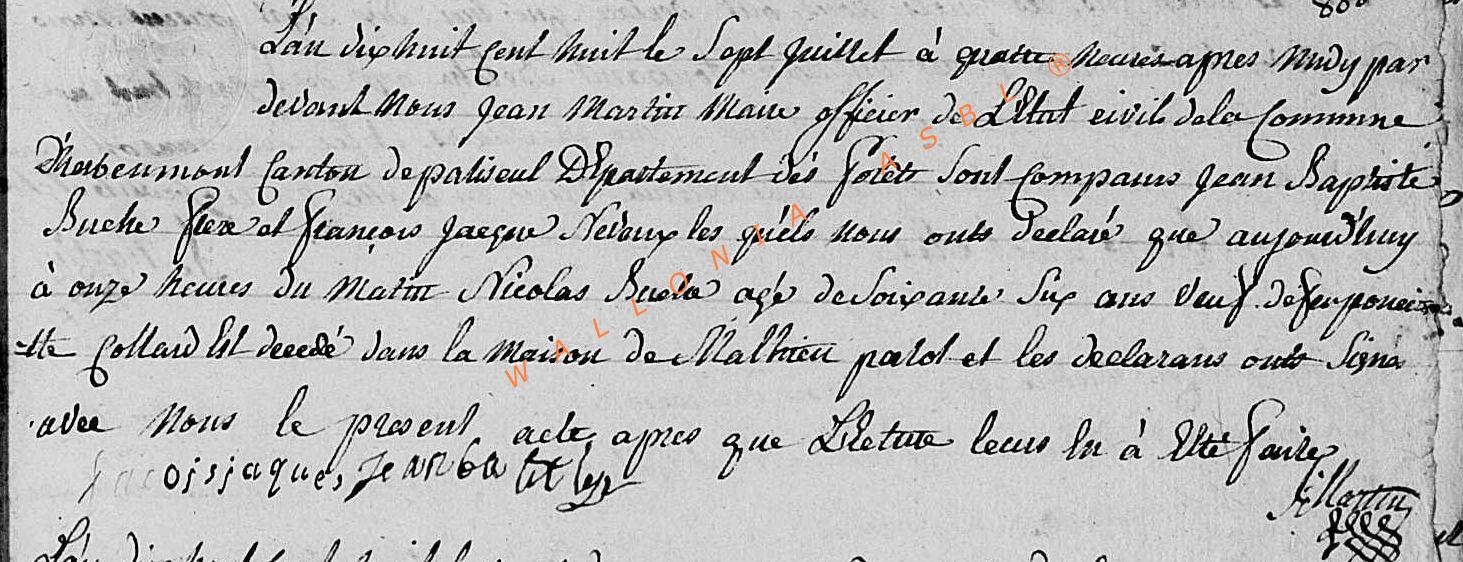 L'án dix huit cent huit le Sept juillet à quatre heures apres midy par
devant Nous jean Martin Maire officier de L'Etat civil de la Commune
D'herbeumont Canton de paliseul Département dés forêts Sont Comparus jean Baptiste
Buche frere et françois jacque Neveux les quéls nous onts declaré que aujourd'huy
à onze heures du Matin Nicolas Buche agé de Soixante Six ans veuf de
-tte Collard Est decedé dans la maison de Mathieu et les declarans onts Signé
avec Nous le present acte apres que Lecture leurs En à Eté faite
jaques, jean ba
Martin
WALLONIA ASBL ®